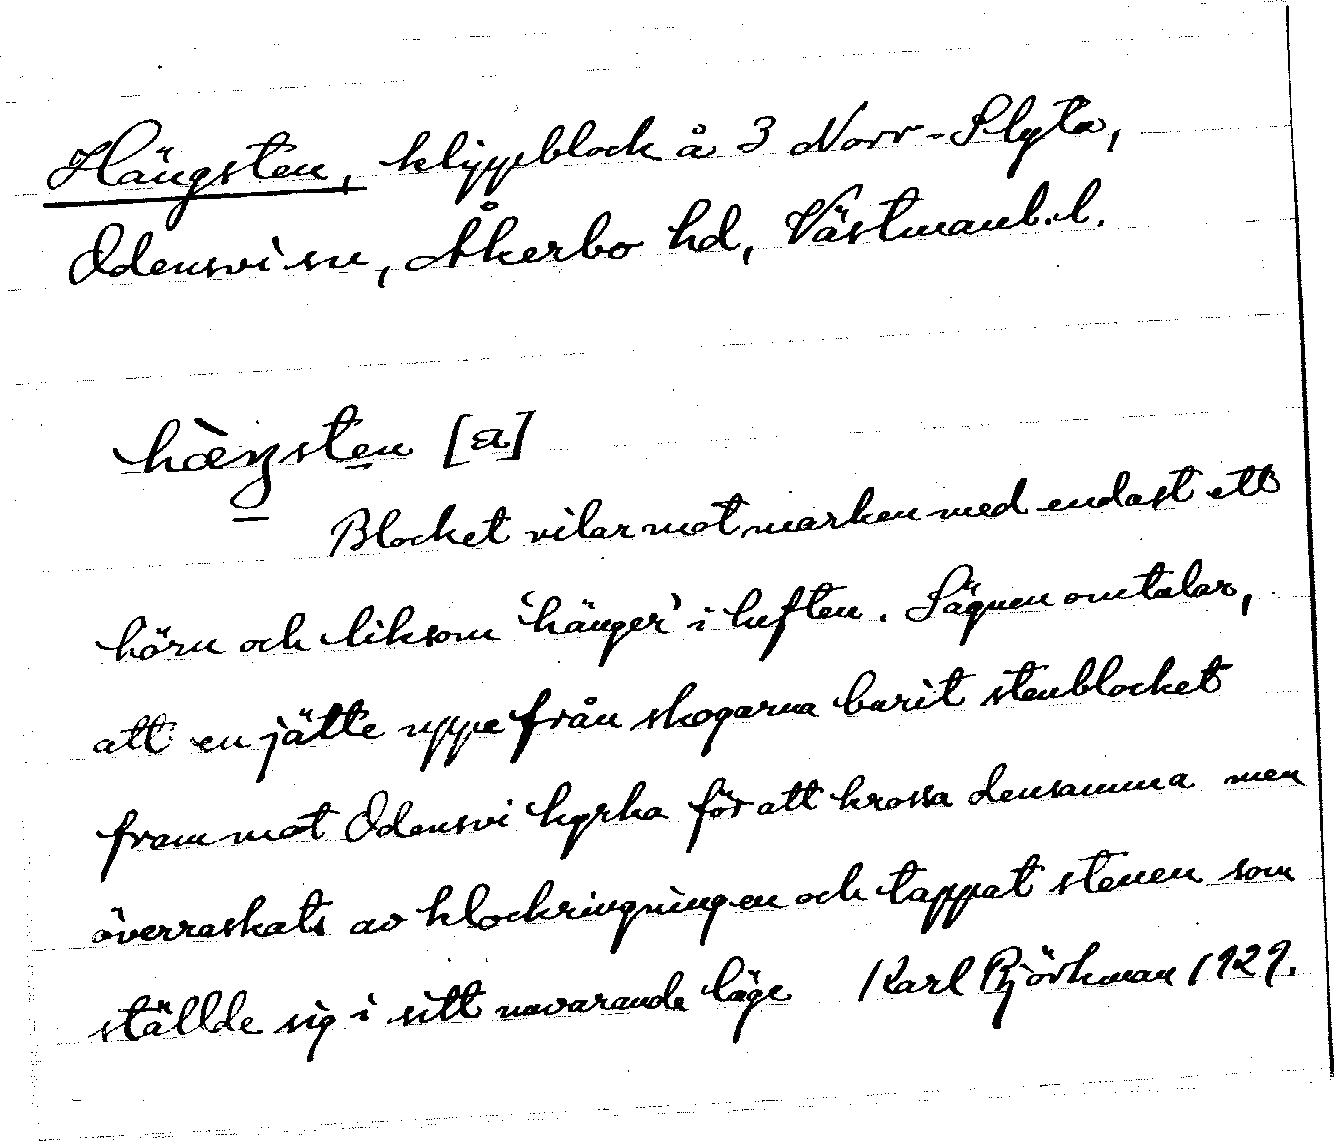 Hängsten, klippblock å 3 Norr-Slyta,
Odensvi sn, Åkerbo hd, Västmanl. l.
hæ̀ŋsten [a]
Blocket vilar mot marken med endast ett
hörn och liksom 'hänger' i luften. Sägnen omtalar,
att en jätte uppe från skogarna burit stenblocket
fram mot Odensvi kyrka för att krossa densamma men
överraskats av klockringningen och tappat stenen som
ställde sig i sitt nuvarande läge Karl Björkman 1929.